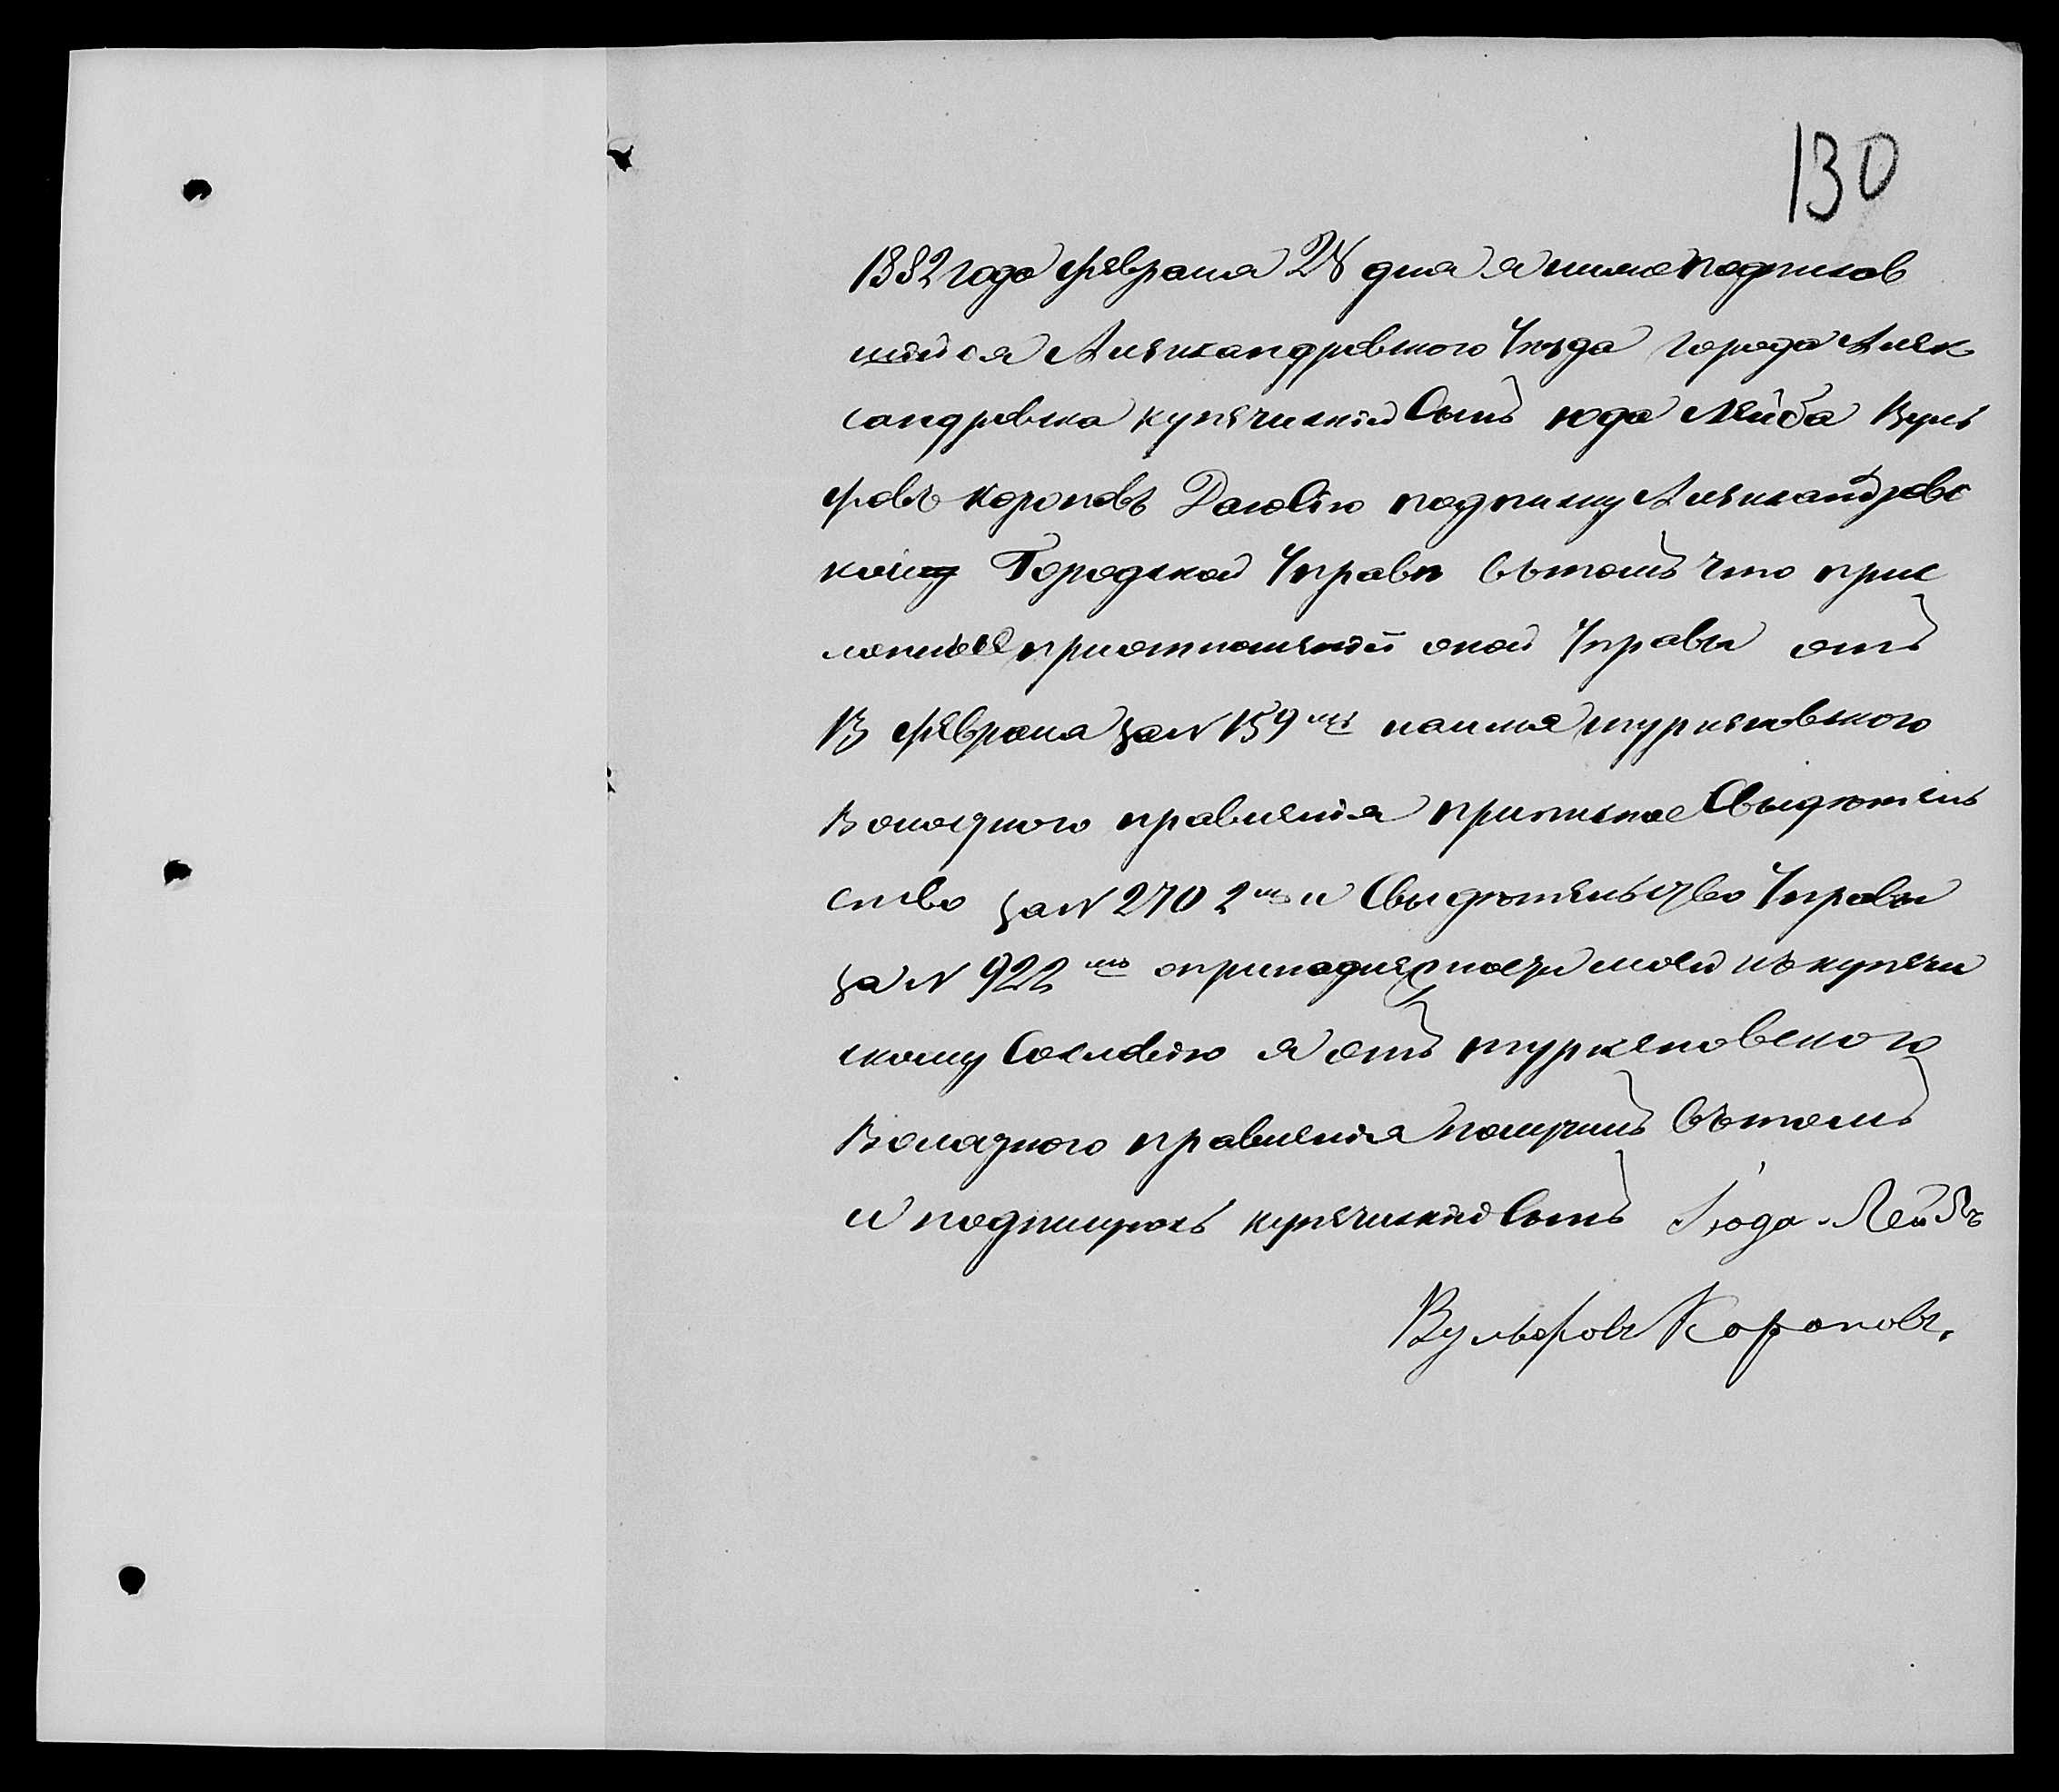 130
1882 года февраля 28 дня я нижеподписав
шийся Александровского Уезда города Алек
сандровска купеческій Сынъ юда Лейба Вуль
фовъ Короповъ Даю Сію подписку Александровс
кой Городской Управе вътомъ что прис
ланные приотношеніи оной Управы отъ
13 февраля за N 159 мъ наимя туркеновского
Волостного правленія приписное Свидетель
ство за N 270 2 мъ и Свидетельство Управы
за N 922 мъ опринадлежности моей къ купечи
скому Сословію я отъ туркеновского
Волостного правленія получилъ вътомъ
и подпишуюсь купеческій Сынъ Іюда Лейбъ
Вульфовъ Короповъ.